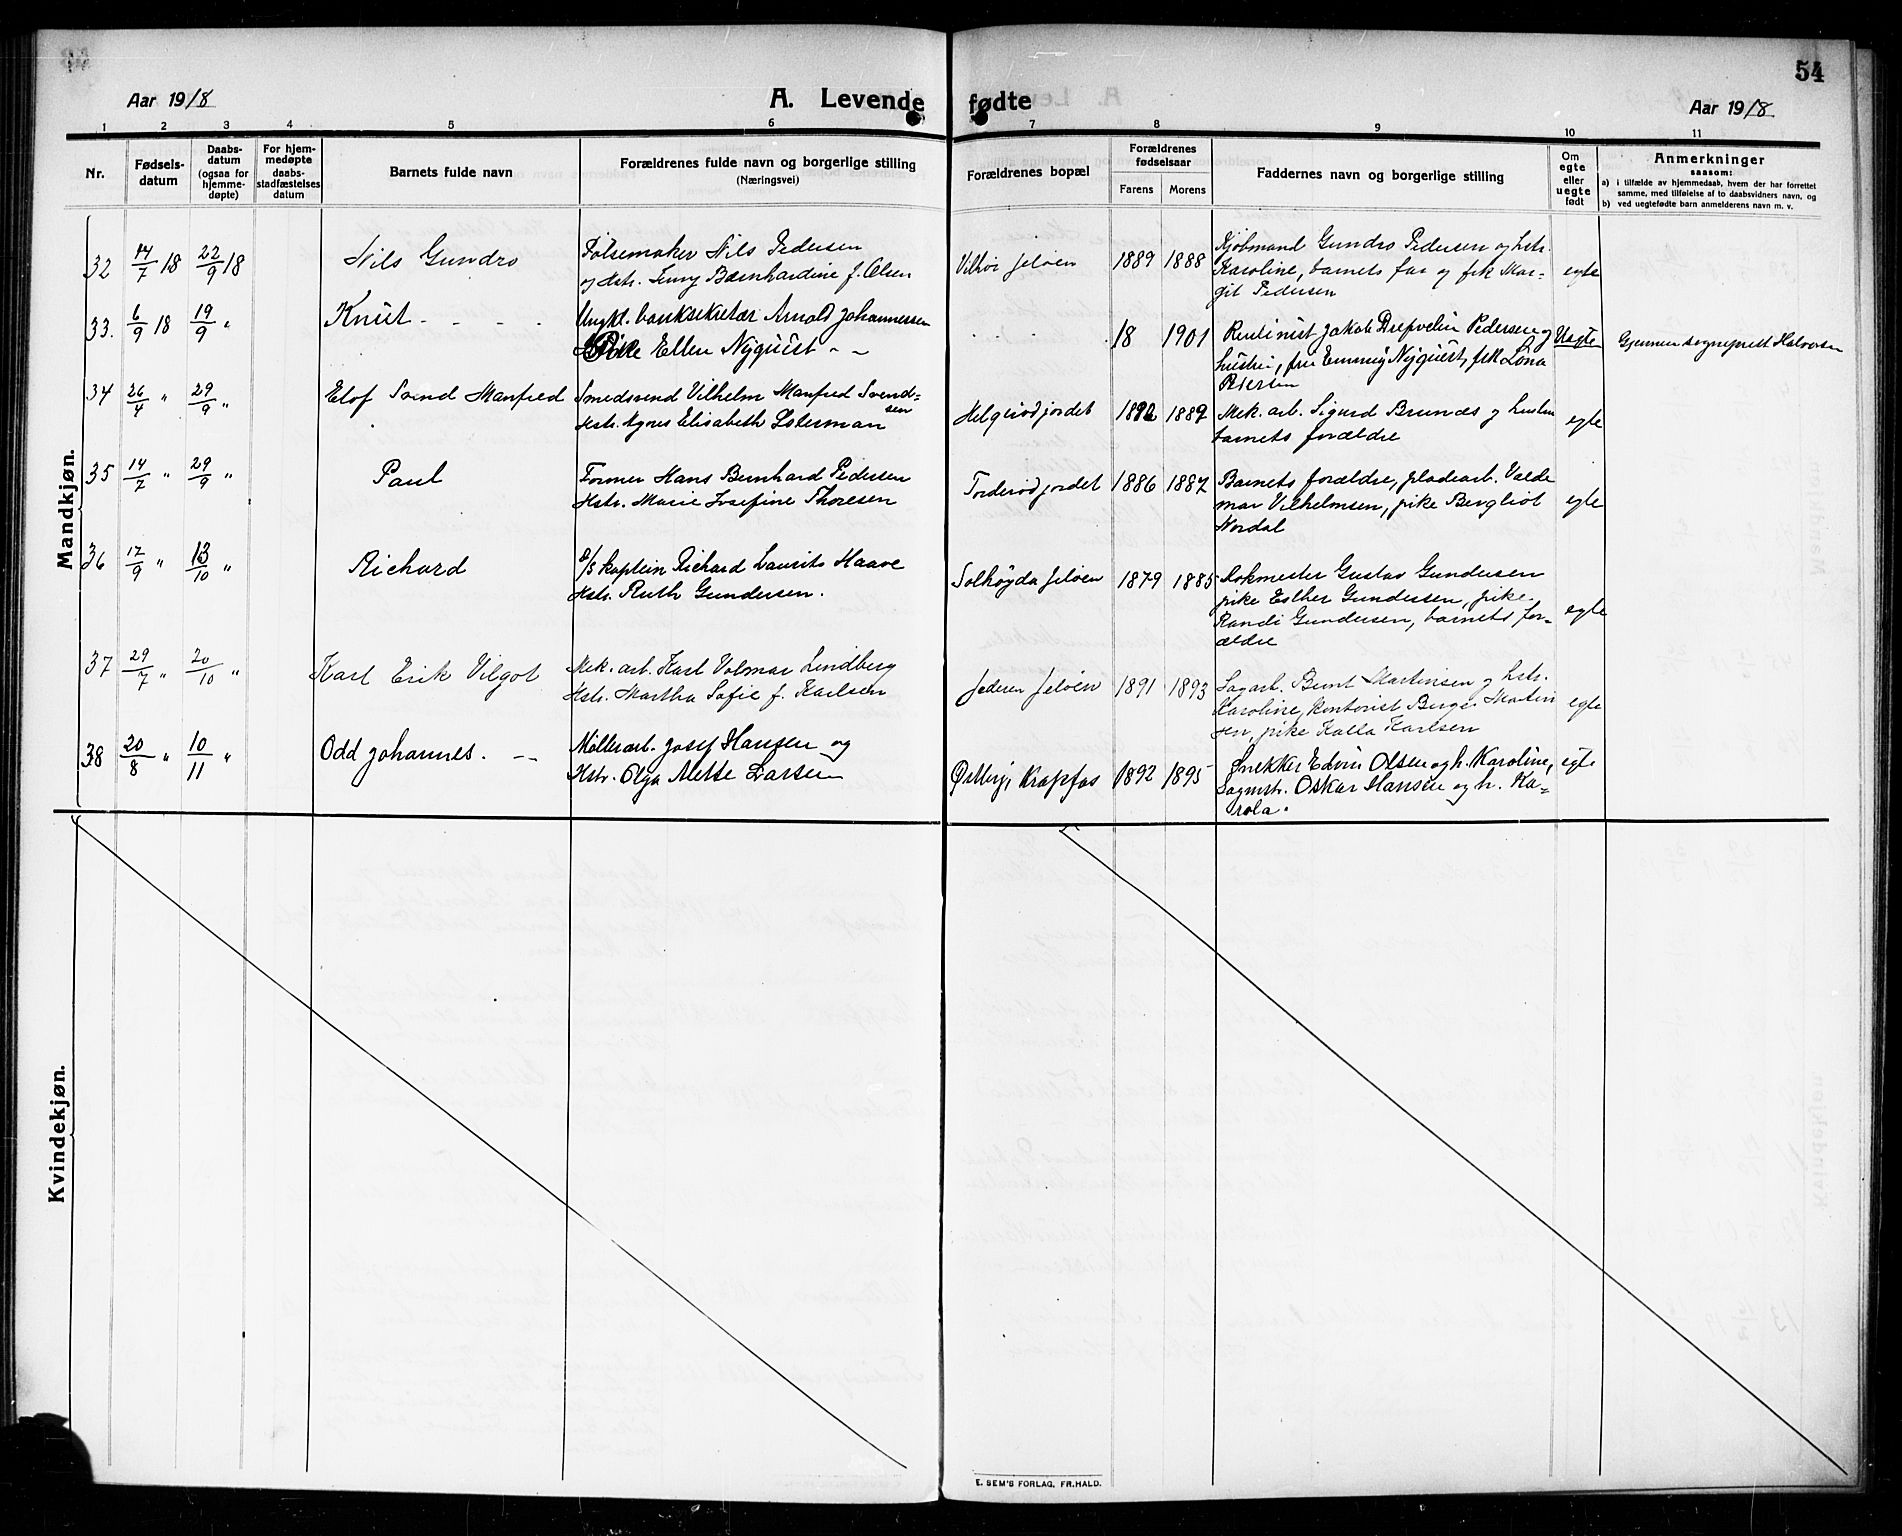 54
Aar 1918
A. Levende fødte
Aar 1918
1 2 3 4 5 6 7 8 9 10 11
Nr.
Fødsels-
datum
Daabs-
datum
(ogsaa for
hjemme-
døpte)
For hjem-
medøpte
daabs-
stadfæstelses
datum
Barnets fulde navn
Forældrenes fulde navn og borgerlige stilling
(Næringsvei)
Forældrenes bopæl
Forældrenes
fødselsaar
Farens Morens
Faddernes navn og borgerlige stilling
Om
egte
eller
uegte
født
Anmerkninger
saasom:
a) i tilfælde av hjemmedaab, hvem der har forrettet
samme, med tilføielse af to daabsvidners navn, og
b) ved uegtefødte barn anmelderens navn m. v.
Mandkjøn.
32 14/7 18 22/9 18 Nils Gundro
Pølsemaker Nils Pedersen
og hstr. Jenny Bernhardine f. Olsen
Jeløen 1889 1888
Kjøbmand Gundro Pedersen og hstr.
Karoline, barnets far og frk Mar-
git Pedersen
egte
33. 6/9 18 19/9 " Knut - - -
Ungkl. banksekretær Arnold Johannessen
Pike Ellen Nyquist - -
18 1901
Rentinist Jakob Pedersen og
hustru, fru Emmy Nyquist, frk Lona
Petersen
Uegte
Gjennem sogneprest Halvorsen
34 26/4 " 29/9 " Elof Svend Manfred
Smedsvend Vilhelm Manfred Svend-
sen
Hstr. Agnes Elisabeth
Helgerødjordet 1889
Mek. arb. Sigurd Brunæs og hustru
barnets forældre
egte
35 14/7 " 29/9 " Paul
Former Hans Bernhard Pedersen
Hstr. Marie Josefine Thoresen
Torderødjordet 1886 1887
Barnets forældre, pladearb. Valde
mar Vilhelmsen, pike Bergliot
Nordal
egte
36 17/9 " 13/10 " Richard
D/S kaptein Richard Laurits Haave
Hstr. Ruth Gundersen.
Solhøgda Jeløen 1879 1885
Lokmester Gustav Gundersen
pike Esther Gundersen, pike
Randi Gundersen, barnets for-
ældre
egte
37 29/7 " 20/10 " Karl Erik Vilgot
Mek. arb. Karl Volmar Lindberg
Hstr. Martha Sofie f. Karlsen
Jederen Jeløen 1891 1893
Sagarb. Bernt Martinsen og hstr.
Karoline, kontorist Birger Martin
sen, pike Kalla Karlsen
egte
38 20/8 " 10/11 " Odd Johannes. - -
Møllearb. Josef Hansen og
Hstr. Olga Mette Larsen
Østberg, Krapfos 1892 1895
Snekker Edvin Olsen og h. Karoline,
Sagmstr. Oskar Hansen og h. Ka-
rola.
egte
Kvindekjøn.
E. SEM'S FORLAG, FR.HALD.